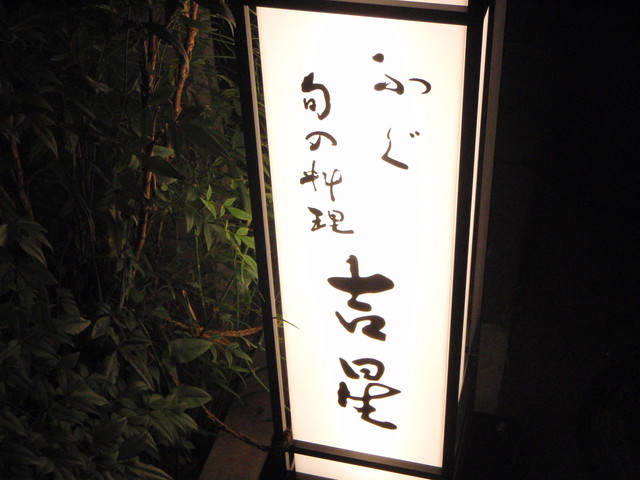 ふぐ
旬の料理
吉星